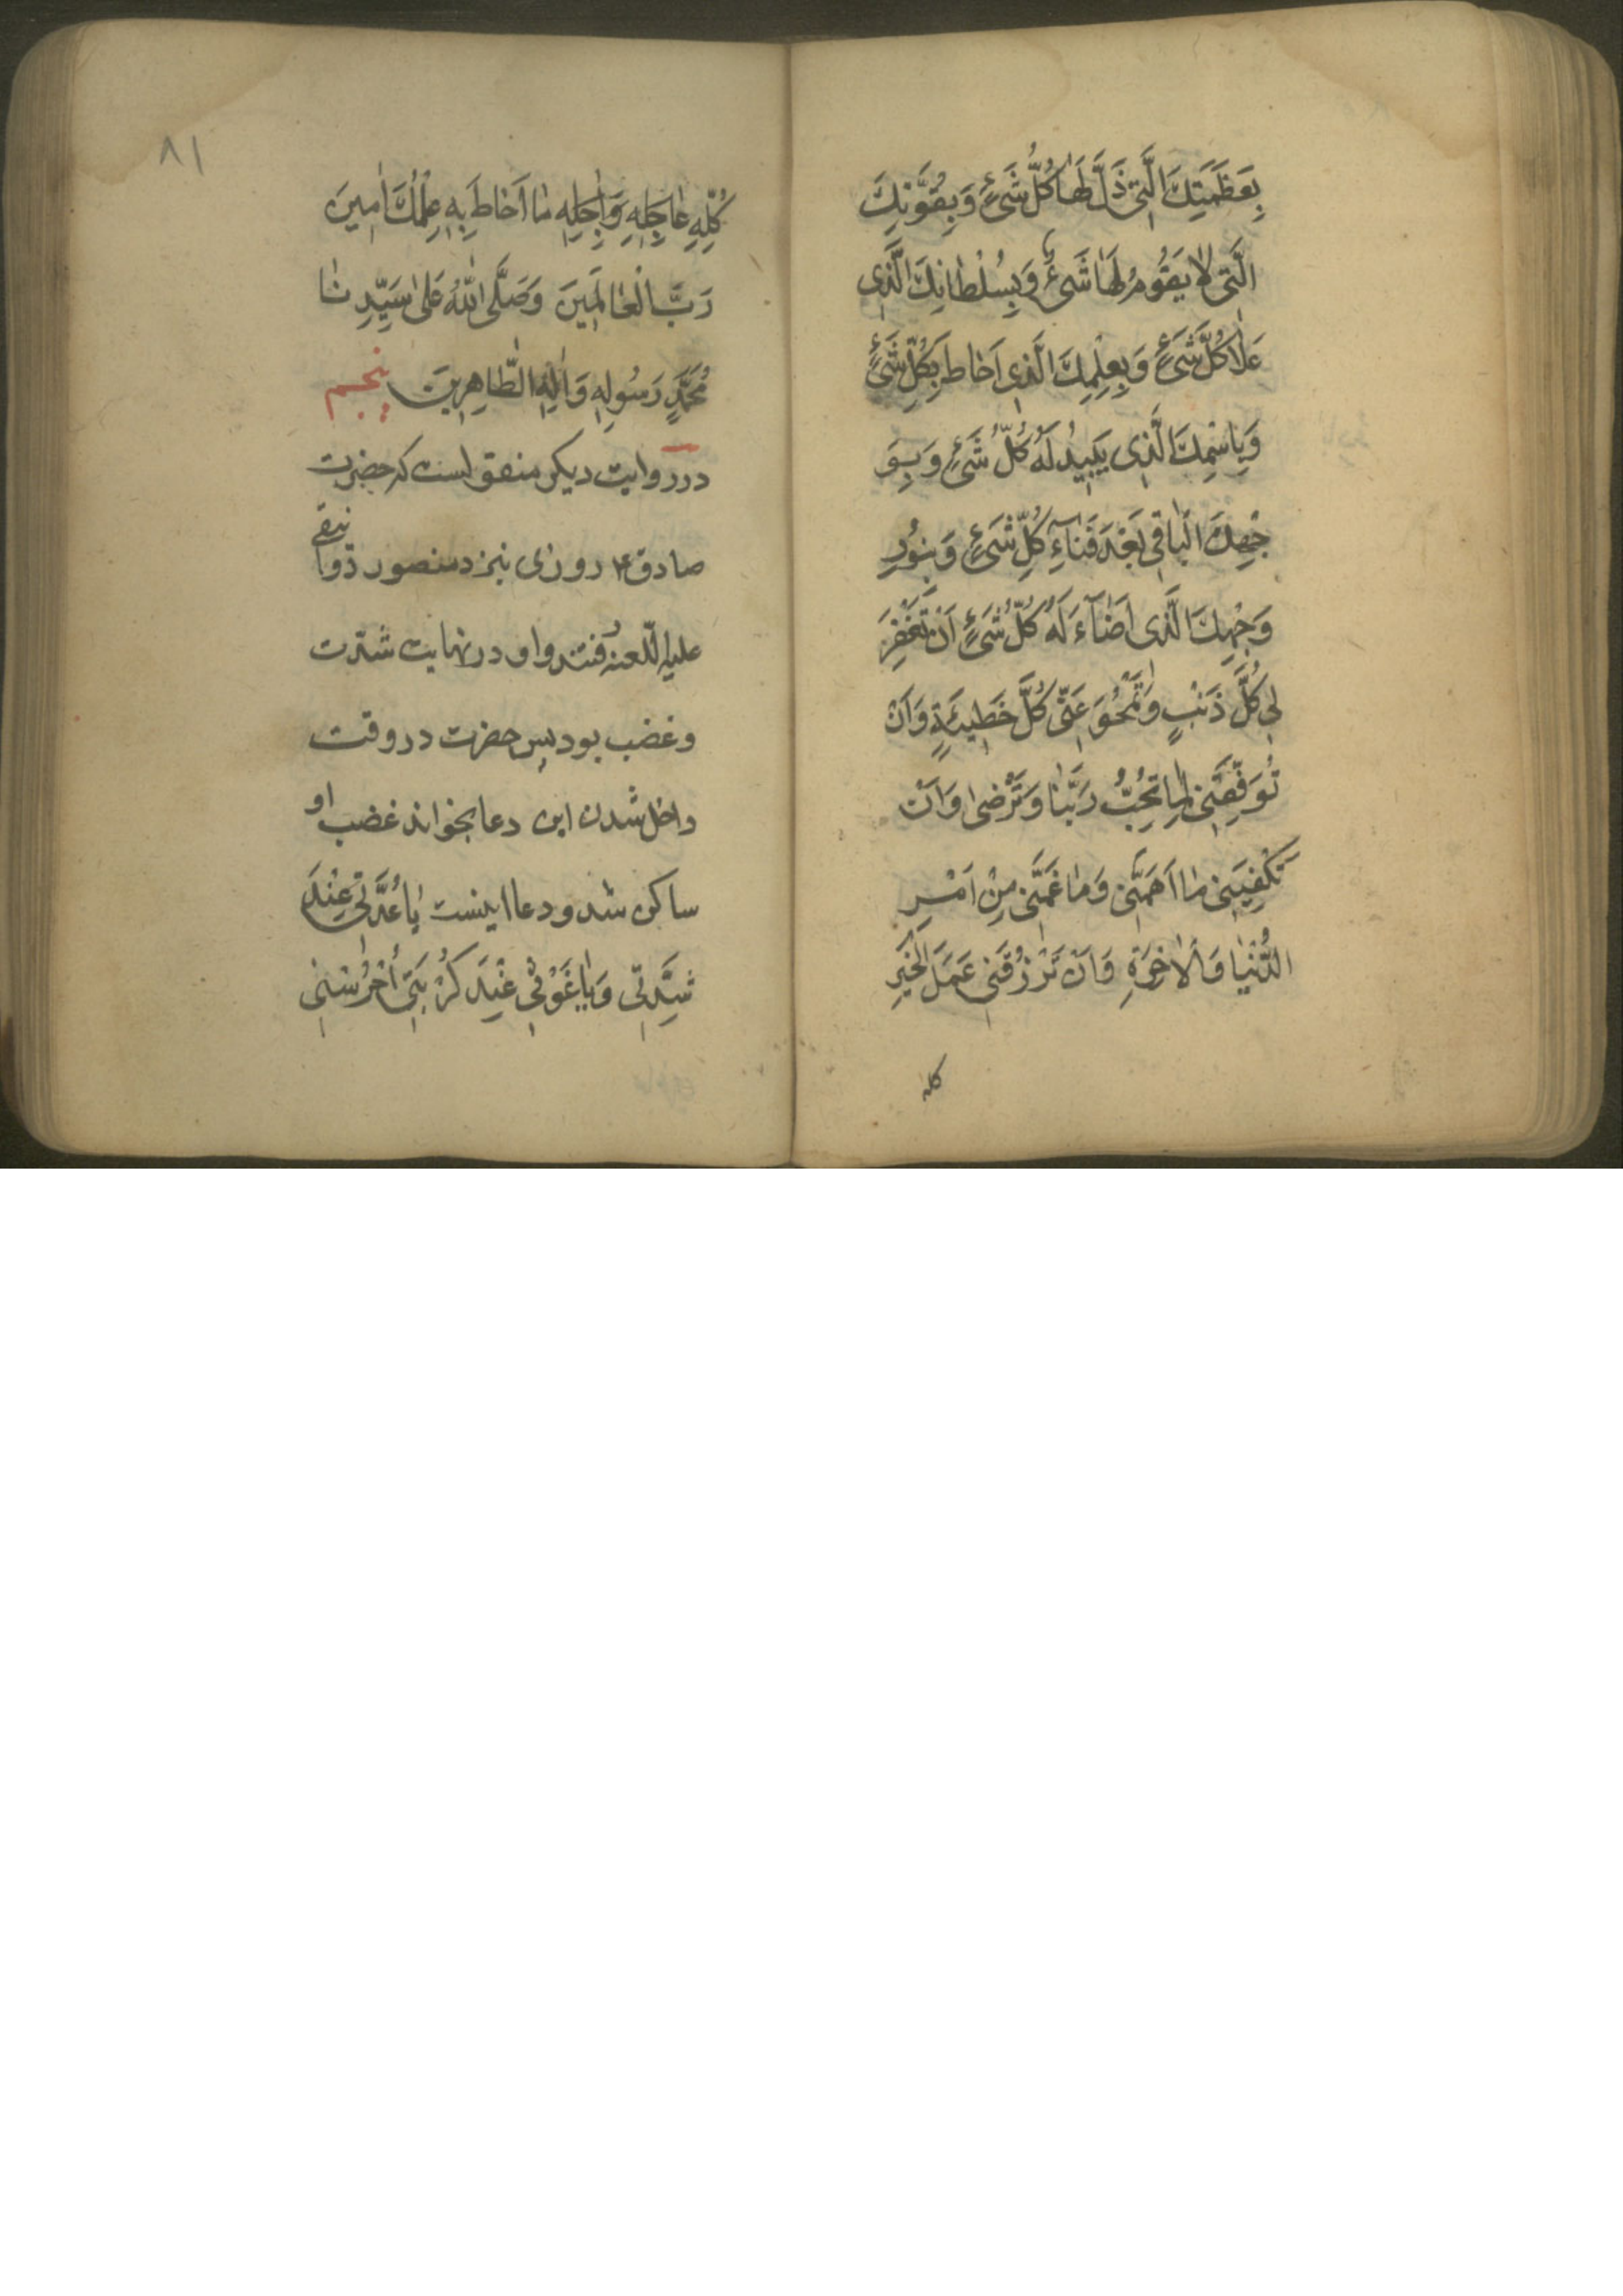 بِعَظَمَتِكَ الَّتی ذَلَّ لَهٰا كُلُّ شَیْءٍ وَ بِقُوَّتِكَ
الَّتی لا یَقُومُ لَهٰا شَیْءٌ وَ بِسُلْطٰانِكَ الَّذی
عَلٰا كُلَّ شَیْءٍ وَ بِعِلْمِكَ الَّذی اَحٰاطَ بِكُلِّ شَیْءٍ
وَ بِاسْمِكَ الَّذی یَبیدُ لَهُ كُلُّ شَیْءٍ وَ بِوَ
جْهِكَ الْبٰاقی بَعْدَ فَنٰاءِ كُلِّ شَیْءٍ وَ بِنُورِ
وَجْهِكَ الَّذی اَضٰآءَ لَهُ كُلُّ شَیْءٍ اَنْ تَغْفِرَ
لی كُلَّ ذَنْبٍ وَ تَمْحُوَ عَنّی كُلَّ خَطیئَةٍ وَ اَنْ
تُوَفِّقَنی لِمٰا تُحِبُّ رَبَّنٰا وَ تَرْضٰی وَ اَنْ
تَكْفِیَنی مٰا اَهَمَّنی وَ مٰا غَمَّنی مِنْ اَمْرِ
الدُّنْیٰا وَ الْاٰخِرَةِ وَ اَنْ تَرْزُقَنی عَمَلَ الْخَیْرِ
كله
٨١
كُلِّهِ عٰاجِلِهِ وَ اٰجِلِهِ مٰا اَحٰاطَ بِهِ عِلْمُكَ اٰمینَ
رَبَّ الْعٰالَمینَ وَ صَلَّی اللّٰهُ عَلٰی سَیِّدِنٰا
مُحَمَّدٍ رَسُولِهِ وَ اٰلِهِ الطّٰاهِرینَ پنجم
در روایت دیكر منقول است كه حضرت
صادق ۴ روزی بنزد منصور دوانیقی
علیه اللّعنه رفتند و او در نهایت شدّت
و غضب بود پس حضرت در وقت
داخل شدن این دعا بخواند غضب او
ساكن شد و دعا اینست یٰا عُدَّتی عِنْدَ
شِدَّتی وَ یٰا غَوْثی عِنْدَ كُرْبَتی اُحْرُسْنی